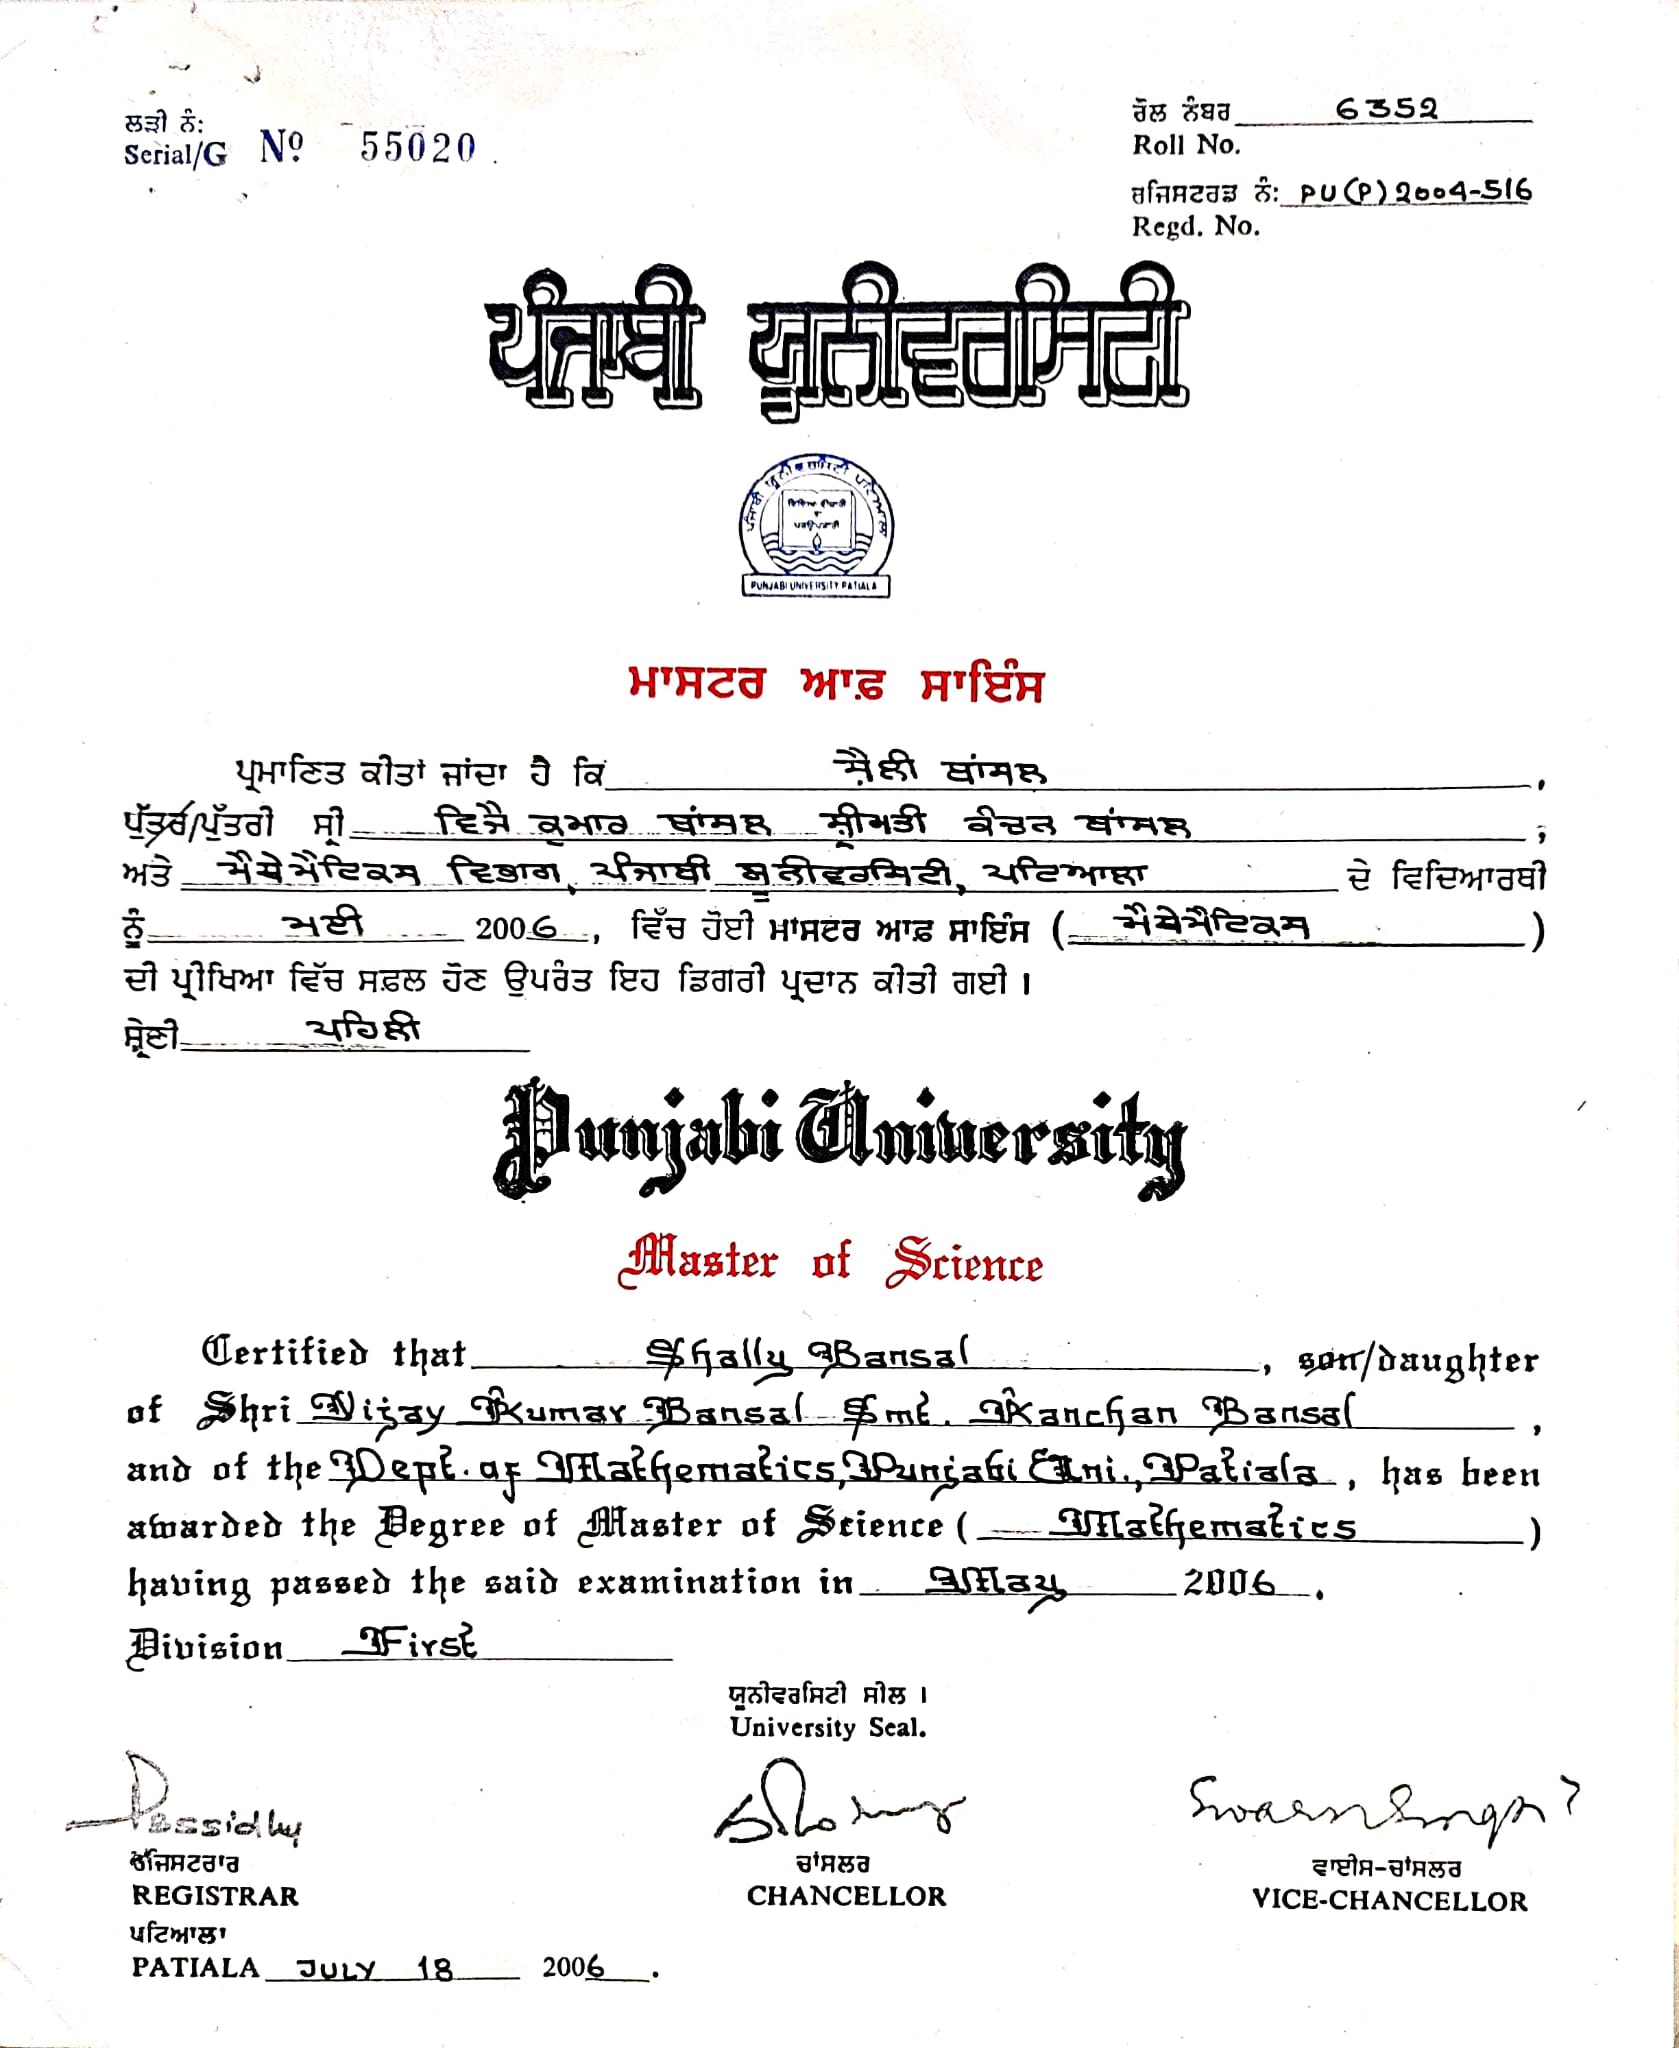 ਲੜੀ ਨੰ:
Serial/G Nº 55020
ਰੋਲ ਨੰਬਰ 6352
Roll No.
ਰਜਿਸਟਰਡ ਨੰ: PU(P)2004-516
Regd. No.
ਪੰਜਾਬੀ ਯੂਨੀਵਰਸਿਟੀ
ਪੰਜਾਬੀ ਯੂਨੀਵਰਸਿਟੀ ਪਟਿਆਲਾ
ਵਿਦਿਆ ਵੀਚਾਰੀ
ਤਾਂ
ਪਰਉਪਕਾਰੀ
PUNJABI UNIVERSITY PATIALA
ਮਾਸਟਰ ਆਫ਼ ਸਾਇੰਸ
ਪ੍ਰਮਾਣਿਤ ਕੀਤਾਂ ਜਾਂਦਾ ਹੈ ਕਿ ਸ਼ੈਲੀ ਬਾਂਸਲ ,
ਪੁੱਤਰ/ਪੁੱਤਰੀ ਸ੍ਰੀ ਵਿਜੈ ਕੁਮਾਰ ਬਾਂਸਲ ਸ਼੍ਰੀਮਤੀ ਕੰਚਨ ਬਾਂਸਲ ,
ਅਤੇ ਮੈਥੇਮੈਟਿਕਸ ਵਿਭਾਗ, ਪੰਜਾਬੀ ਯੂਨੀਵਰਸਿਟੀ, ਪਟਿਆਲਾ ਦੇ ਵਿਦਿਆਰਥੀ
ਨੂੰ ਮਈ 2006, ਵਿੱਚ ਹੋਈ ਮਾਸਟਰ ਆਫ਼ ਸਾਇੰਸ ( ਮੈਥੇਮੈਟਿਕਸ )
ਦੀ ਪ੍ਰੀਖਿਆ ਵਿੱਚ ਸਫ਼ਲ ਹੋਣ ਉਪਰੰਤ ਇਹ ਡਿਗਰੀ ਪ੍ਰਦਾਨ ਕੀਤੀ ਗਈ।
ਸ਼੍ਰੇਣੀ ਪਹਿਲੀ
Punjabi University
Master of Science
Certified that Shally Bansal , son/daughter
of Shri Vijay Kumar Bansal Smt. Kanchan Bansal ,
and of the Dept. of Mathematics, Punjabi Uni., Patiala , has been
awarded the Degree of Master of Science ( Mathematics )
having passed the said examination in May 2006 .
Division First
ਯੂਨੀਵਰਸਿਟੀ ਸੀਲ।
University Seal.
Swarn Singh
ਰਜਿਸਟਰਾਰ
REGISTRAR
ਚਾਂਸਲਰ
CHANCELLOR
ਵਾਈਸ-ਚਾਂਸਲਰ
VICE-CHANCELLOR
ਪਟਿਆਲਾ
PATIALA JULY 18 2006 .